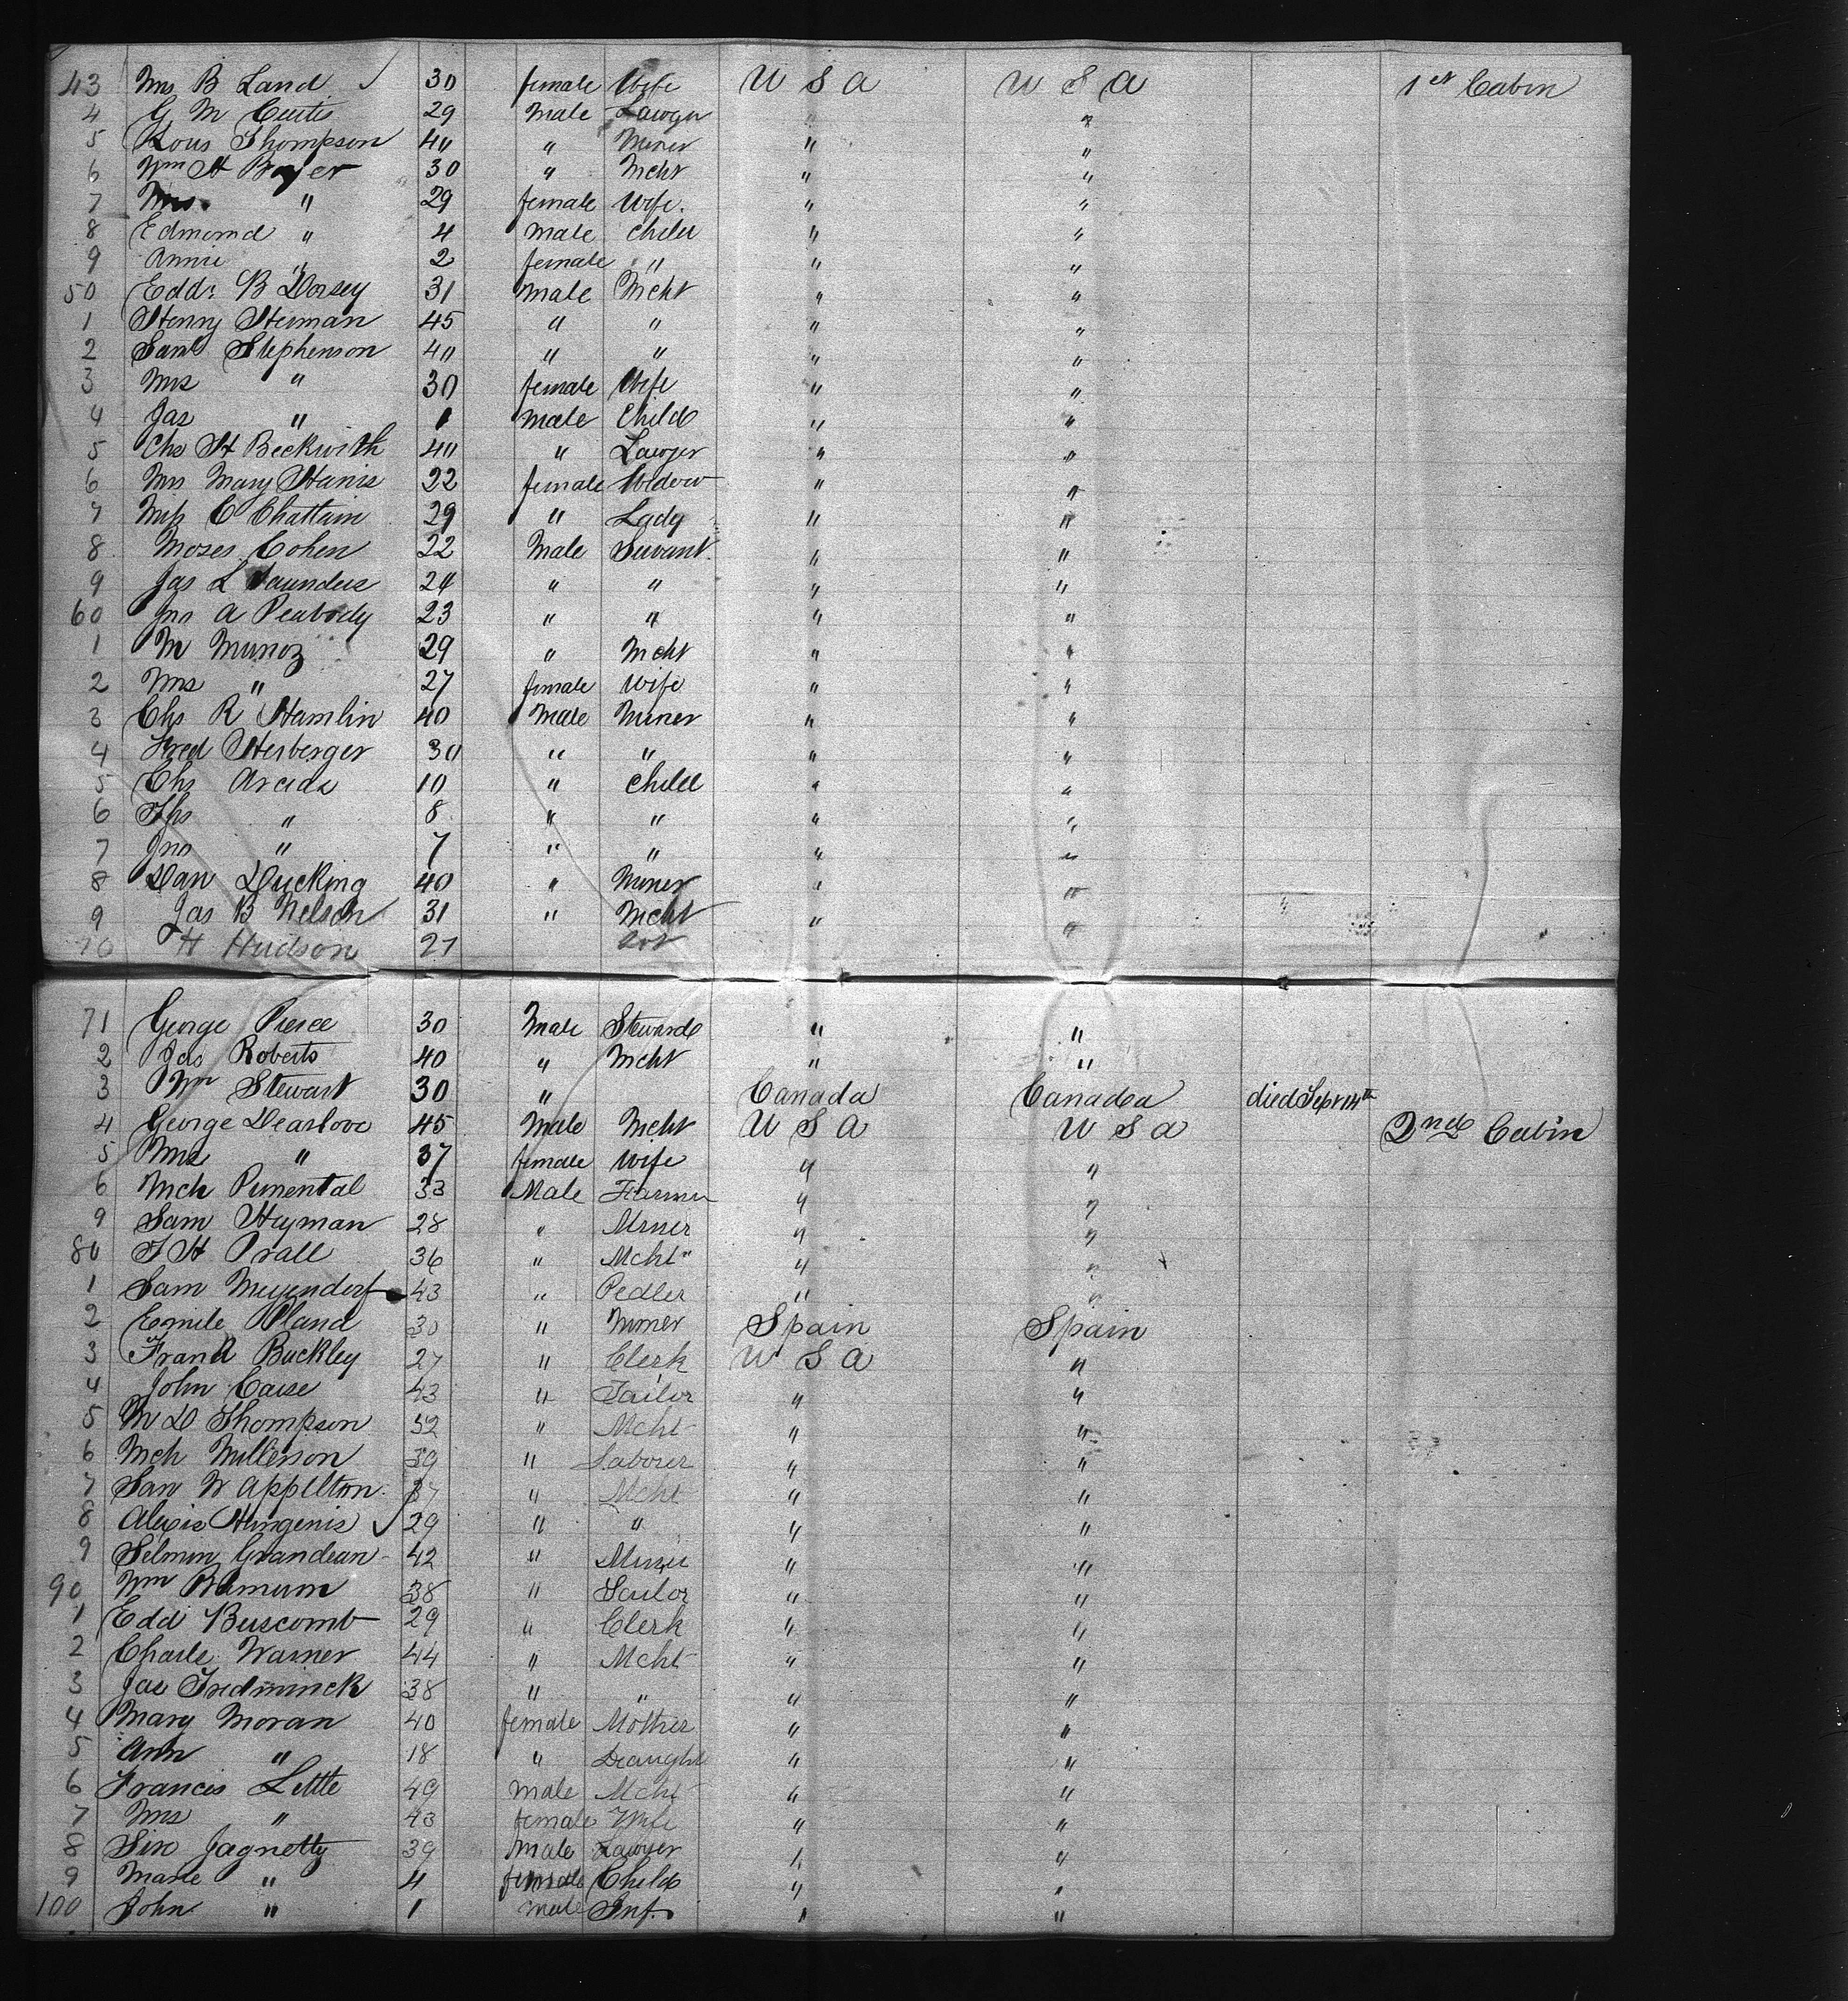 43 Mrs B Land ✓ 30 female Wife U S A U S A 1st Cabin
4 G M Curtis 29 Male Lawyer " "
5 Rous Thompson 40 " Miner " "
6 Wm H Boyer 30 " Mcht " "
7 Mrs " 29 female Wife. " "
8 Edmond " 4 Male Child " "
9 Annie " 2 female " " "
50 Edd: B Dorsey 31 Male Mcht " "
1 Henry Herman 45 " " " "
2 Saml Stephenson 40 " " " "
3 Mrs " 30 female Wife " "
4 Jas " 1 Male Child " "
5 Chs H Beckwith 40 " Lawyer " "
6 Mrs Mary Harris 22 female Widow " "
7 Miss C Chattain 29 " Lady " "
8 Moses Cohen 22 Male Servant " "
9 Jas L Saunders 24 " " " "
60 Jno A Peabody 23 " " " "
1 M Munoz 29 " Mcht " "
2 Mrs " 27 female Wife " "
3 Chs R Hamlin 40 Male Miner " "
4 Fred Herberger 30 " " " "
5 Chs 10 " Child " "
6 Ths " 8 " " " "
7 Jno " 7 " " " "
8 Dan Ducking 40 " Miner " "
9 Jas B Nelson 31 " Mcht " "
70 H Hudson 27
71 George Pierce 30 Male Steward " "
2 Jas Roberts 40 " Mcht " "
3 Wm Stewart 30 " Canada Canada died Sept 14th
4 George Dearlove 45 Male Mcht U S A U S A 2nd Cabin
5 Mrs " 37 female Wife " "
6 Mch Pimental 33 Male Farmer " "
9 Sam Heyman 28 " Miner " "
80 F H Prall 36 " Mcht " "
1 Sam Meyendorf 43 " Pedler " "
2 Emile Pland 30 " Miner Spain Spain
3 Frank Buckley 27 " Clerk U S A "
4 John Caise 43 " Tailor " "
5 M D Thompson 32 " Mcht " "
6 Mch Millerson 39 " Laborer " "
7 Sam W Applston 37 " Mcht " "
8 Alexis Hingenis ✓ 29 " " " "
9 Selmin Grandean 42 " " "
90 Wm Barnum 38 " Sailor " "
1 Edd Buscomb 29 " Clerk " "
2 Charle Warner 44 " Mcht " "
3 Jas Fredminck 38 " " " "
4 Mary Moran 40 female Mother " "
5 Ann " 18 " Daught " "
6 Francis Little 49 male Mcht " "
7 Mrs " 43 female Wife " "
8 Jagnetty 39 Male Lawyer " "
9 Marie " 4 female Child " "
100 John " 1 male Inf. " "